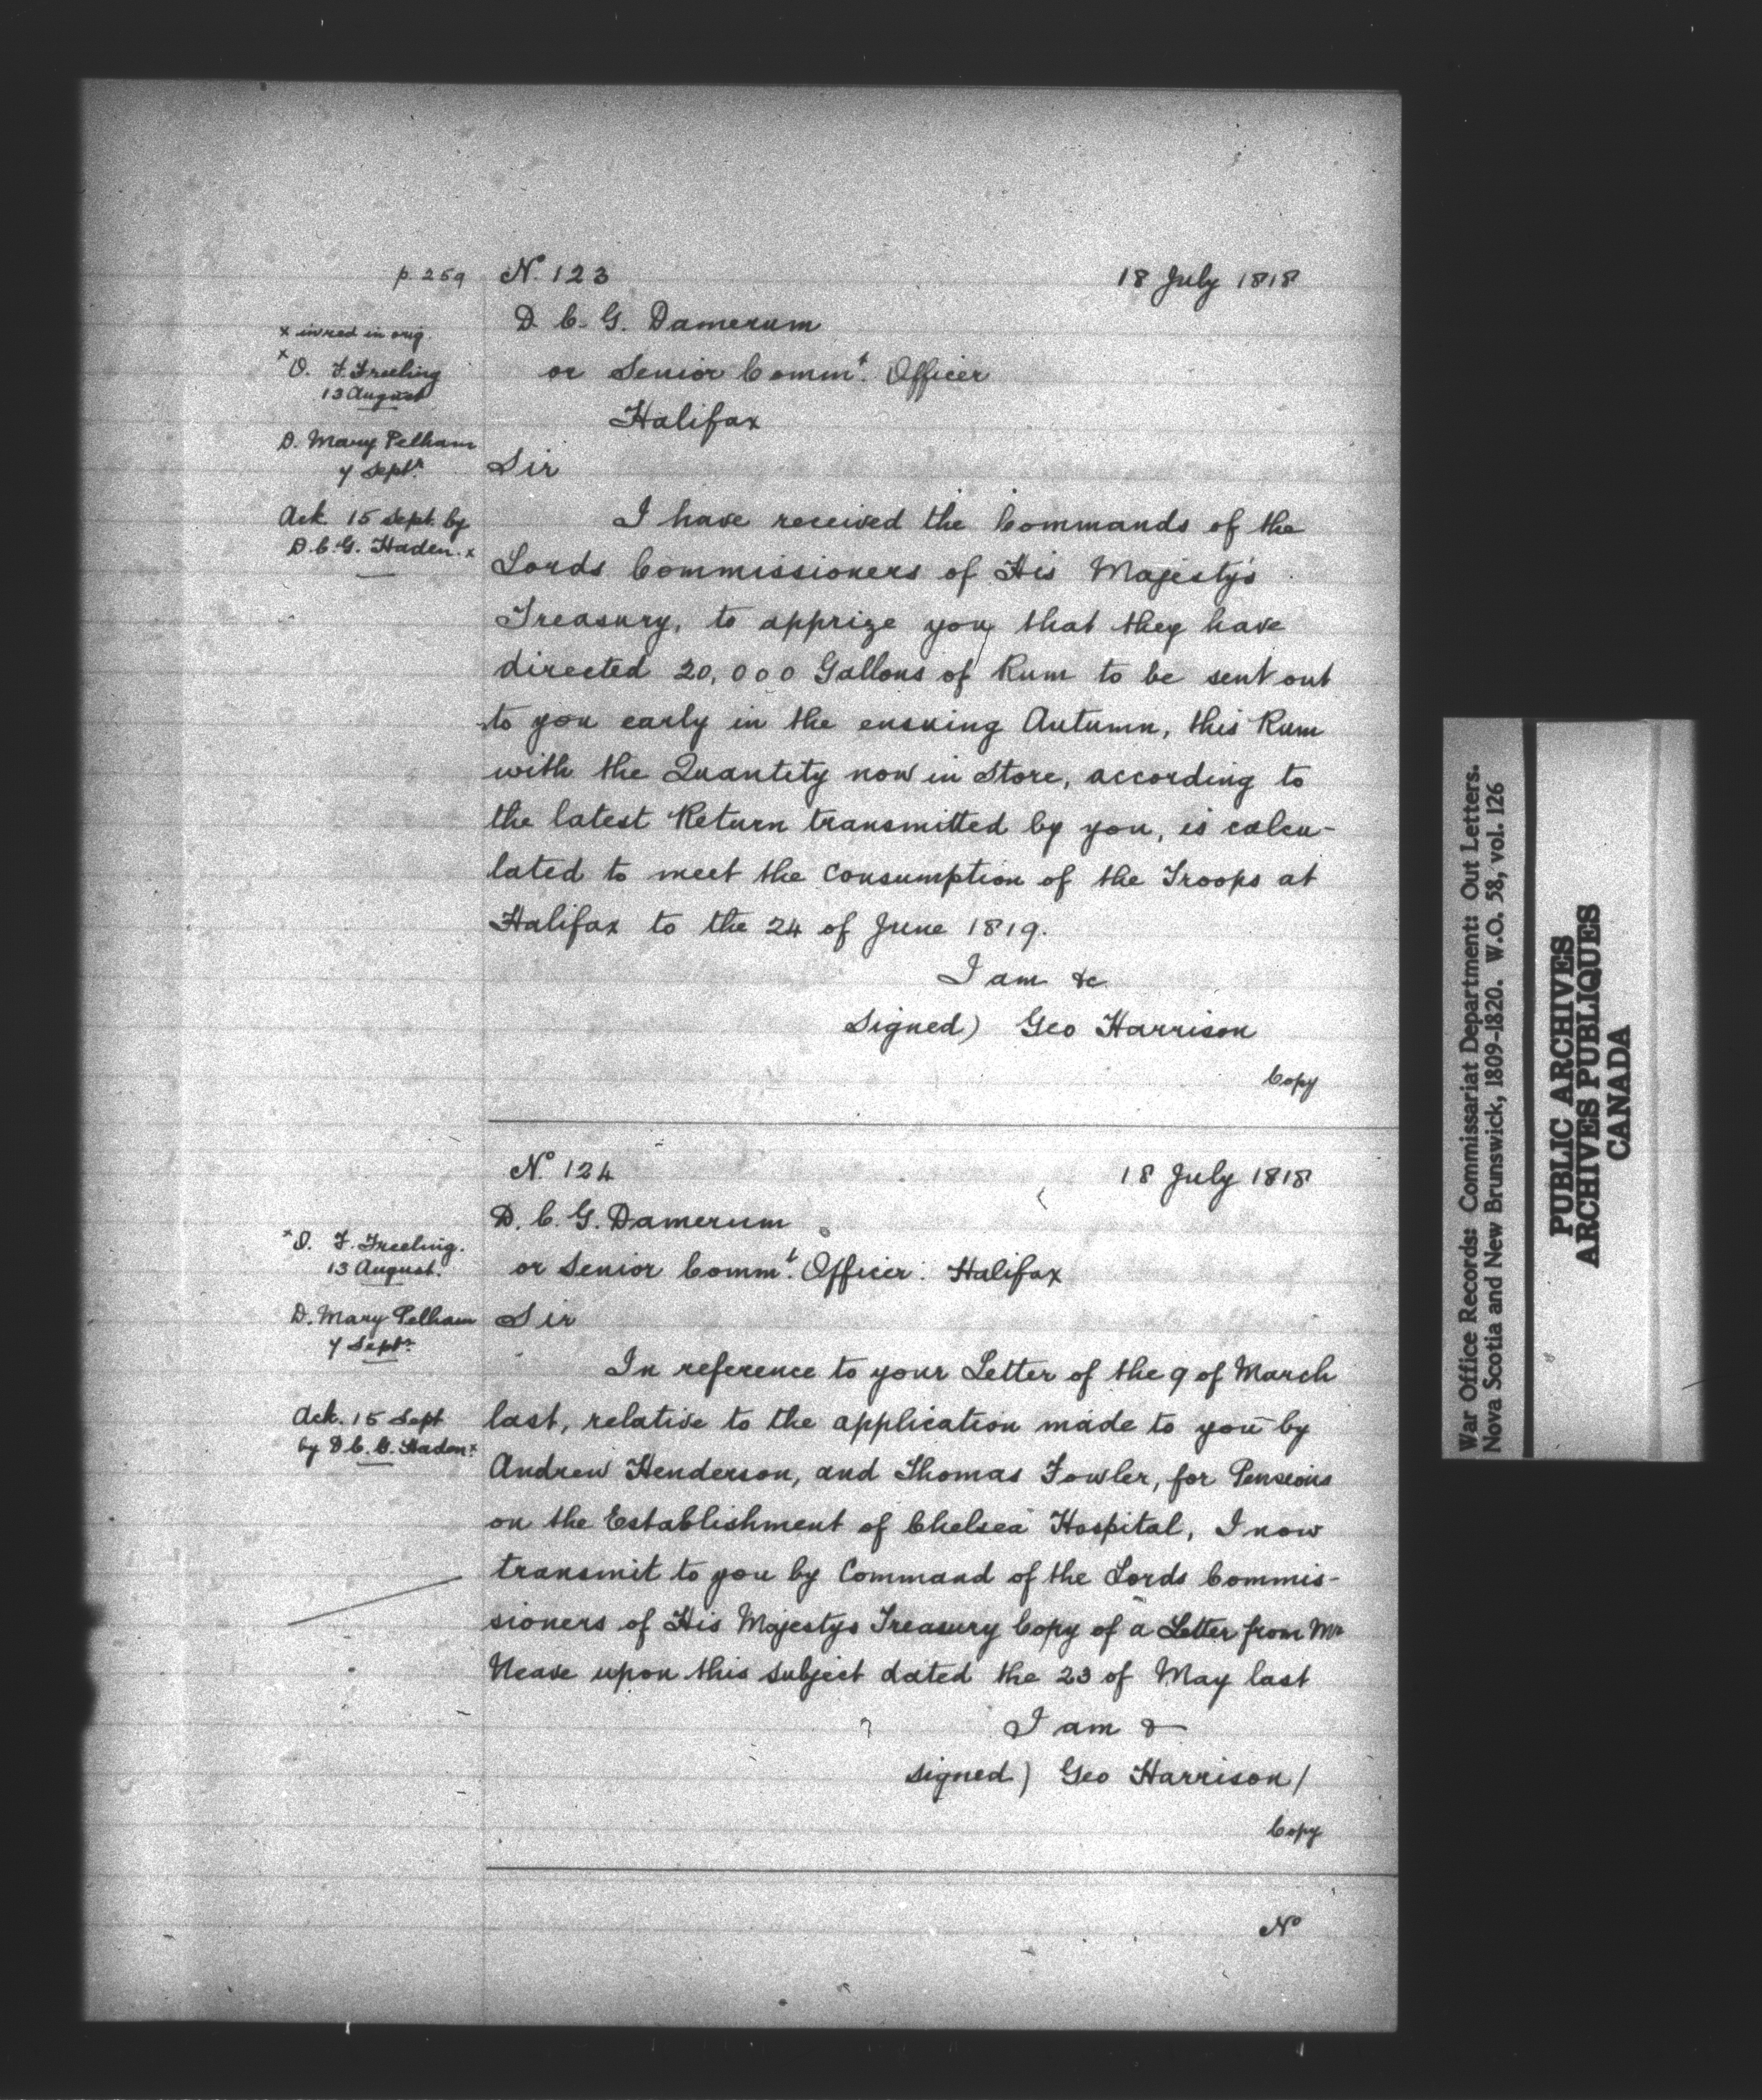 p. 259
Nº 123
18 July 1818
x in red in orig.
D. C. G. Damerum
or Senior Commt. Officer
Halifax
x O. F. Freeling
13 August
D. Mary Pelham
7 Septr.
Ack. 15 Sept. by
D.C.G. Haden. x
Sir
I have received the Commands of the
Lords Commissioners of His Majesty's
Treasury, to apprize you that they have
directed 20,000 Gallons of Rum to be sent out
to you early in the ensuing Autumn, this Rum
with the Quantity now in Store, according to
the latest Return transmitted by you, is calcu-
lated to meet the Consumption of the Troops at
Halifax to the 24 of June 1819.
I am &c
Signed) Geo Harrison
Copy
Nº 124
18 July 1818
D. C. G. Damerum
or Senior Commt. Officer. Halifax
x O. F. Freeling.
13 August.
D. Mary Pelham
7 Septr.
Ack. 15 Sept
by D.C.G. Haden. x
Sir
In reference to your Letter of the 9 of March
last, relative to the application made to you by
Andrew Henderson, and Thomas Fowler, for Pensions
on the Establishment of Chelsea Hospital, I now
transmit to you by Command of the Lords Commis-
sioners of His Majestys Treasury Copy of a Letter from Mr
Neave upon this subject dated the 23 of May last
I am &
signed) Geo Harrison/
Copy
Nº
War Office Records: Commissariat Department: Out Letters.
Nova Scotia and New Brunswick, 1809-1820. W.O. 58, vol. 126
PUBLIC ARCHIVES
ARCHIVES PUBLIQUES
CANADA